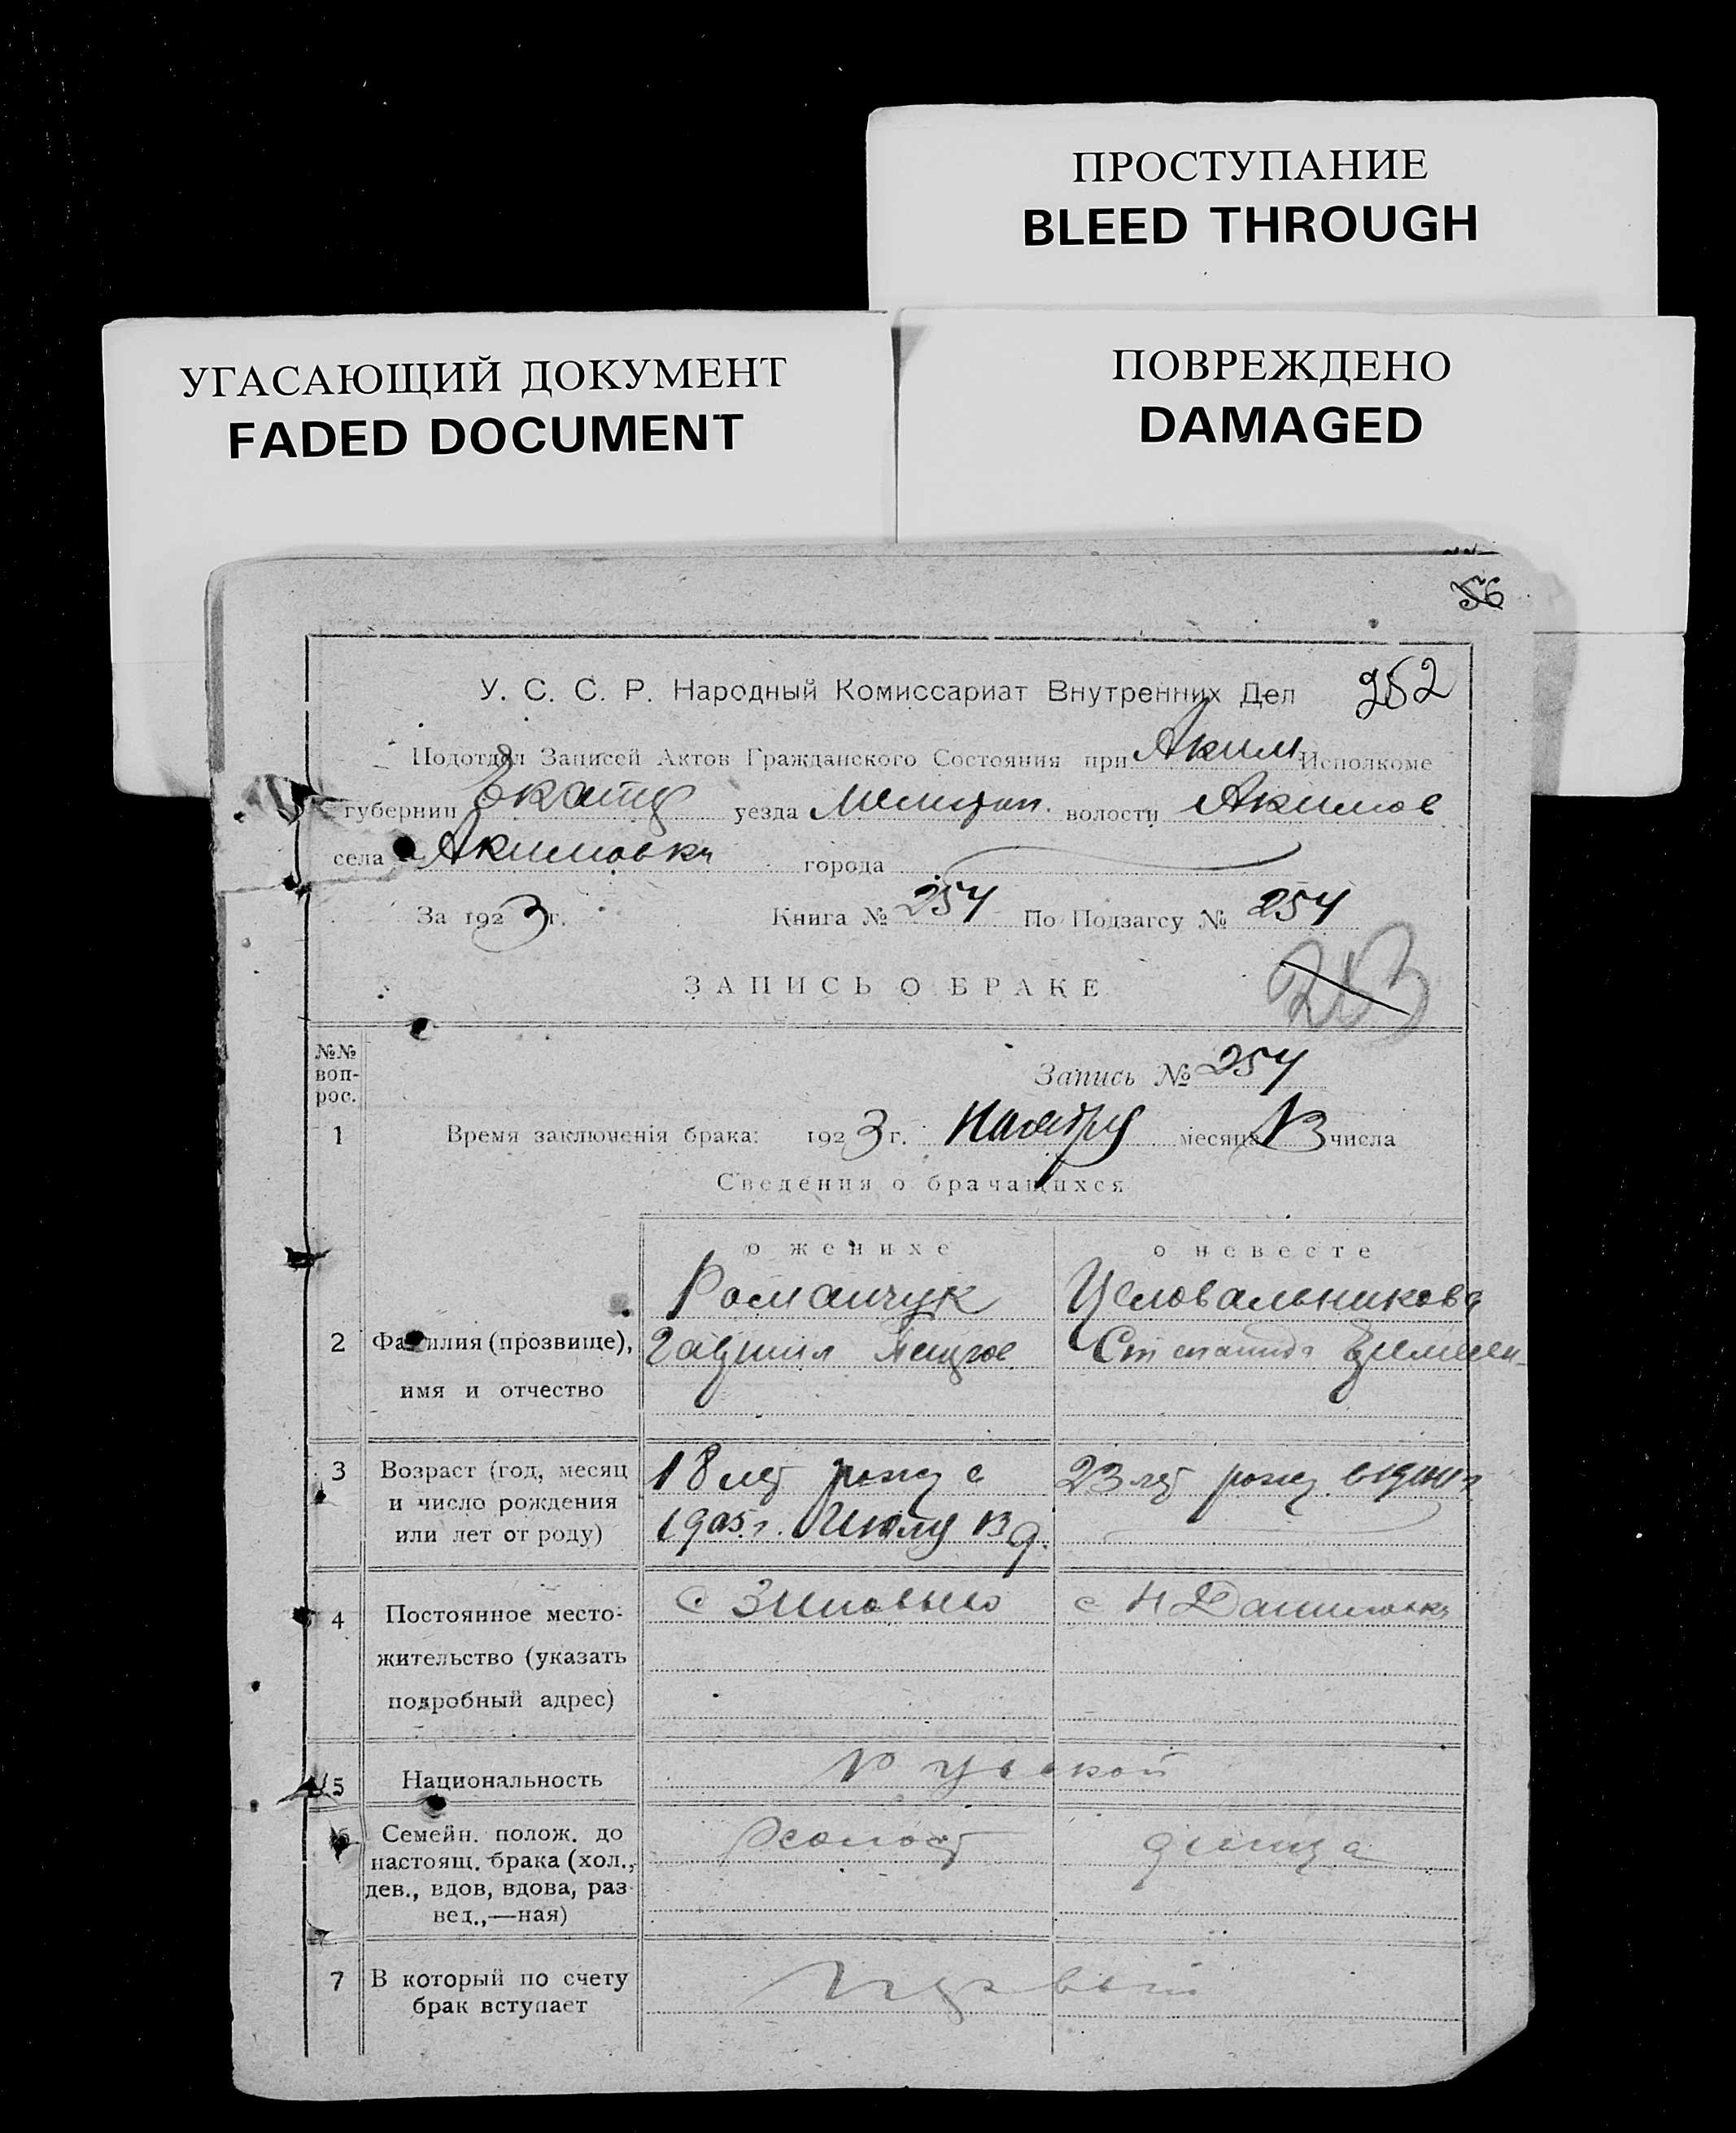 ПРОСТУПАНИЕ
BLEED THROUGH
УГАСАЮЩИЙ ДОКУМЕНТ
FADED DOCUMENT
ПОВРЕЖДЕНО
DAMAGED
56
У. С. С. Р. Народный Комиссариат Внутренних Дел 252
Подотдел Записей Актов Гражданского Состояния при Аким Исполкоме
губернии Екат уезда Мелитоп. волости Акимов
села Акимовка города
За 1923 г. Книга № 254 По Подзагсу № 254
ЗАПИСЬ О БРАКЕ 253
№№ воп-
рос.
Запись № 254
1 Время заключенія брака: 1923 г. Ноября месяца 13 числа
Сведения о брачащихся
о женихе о невесте
Романчук Целовальникова
2 Фамилия (прозвище), Гавриил Петров Степанида
имя и отчество
3 Возраст (год, месяц 18 лет рожд с 23 лет рожд.
и число рождения
или лет от роду) 1905 г. Июля 13 д.
4 Постоянное место- с Зиновьево с Н Даниловка
жительство (указать
подробный адрес)
5 Национальность Русской
6 Семейн. полож. до Холост девица
настоящ. брака (хол.,
дев., вдов, вдова, раз-
вед.,—ная)
7 В который по счету первый
брак вступает